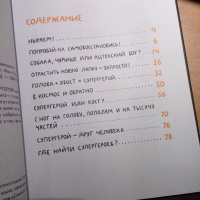 СОДЕРЖАНИЕ
НЫРЯЕМ! 4
ПОПРОБУЙ-КА САМОВОССТАНОВИСЬ! 6
СОБАКА, ЧУДИЩЕ ИЛИ АЦТЕКСКИЙ БОГ? 14
ОТРАСТИТЬ НОВУЮ ЛАПКУ – ЗАПРОСТО! 26
ГОЛОВА + ХВОСТ = СУПЕРГЕРОЙ 32
В КОСМОС И ОБРАТНО 50
СУПЕРГЕРОЙ ИЛИ КУСТ? 56
С НОГ НА ГОЛОВУ, ПОПОЛАМ И НА ТЫСЯЧУ
ЧАСТЕЙ 70
СУПЕРГЕРОЙ – ДРУГ ЧЕЛОВЕКА 76
ГДЕ НАЙТИ СУПЕРГЕРОЕВ? 78